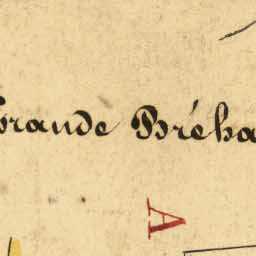 Grande Bréha
A